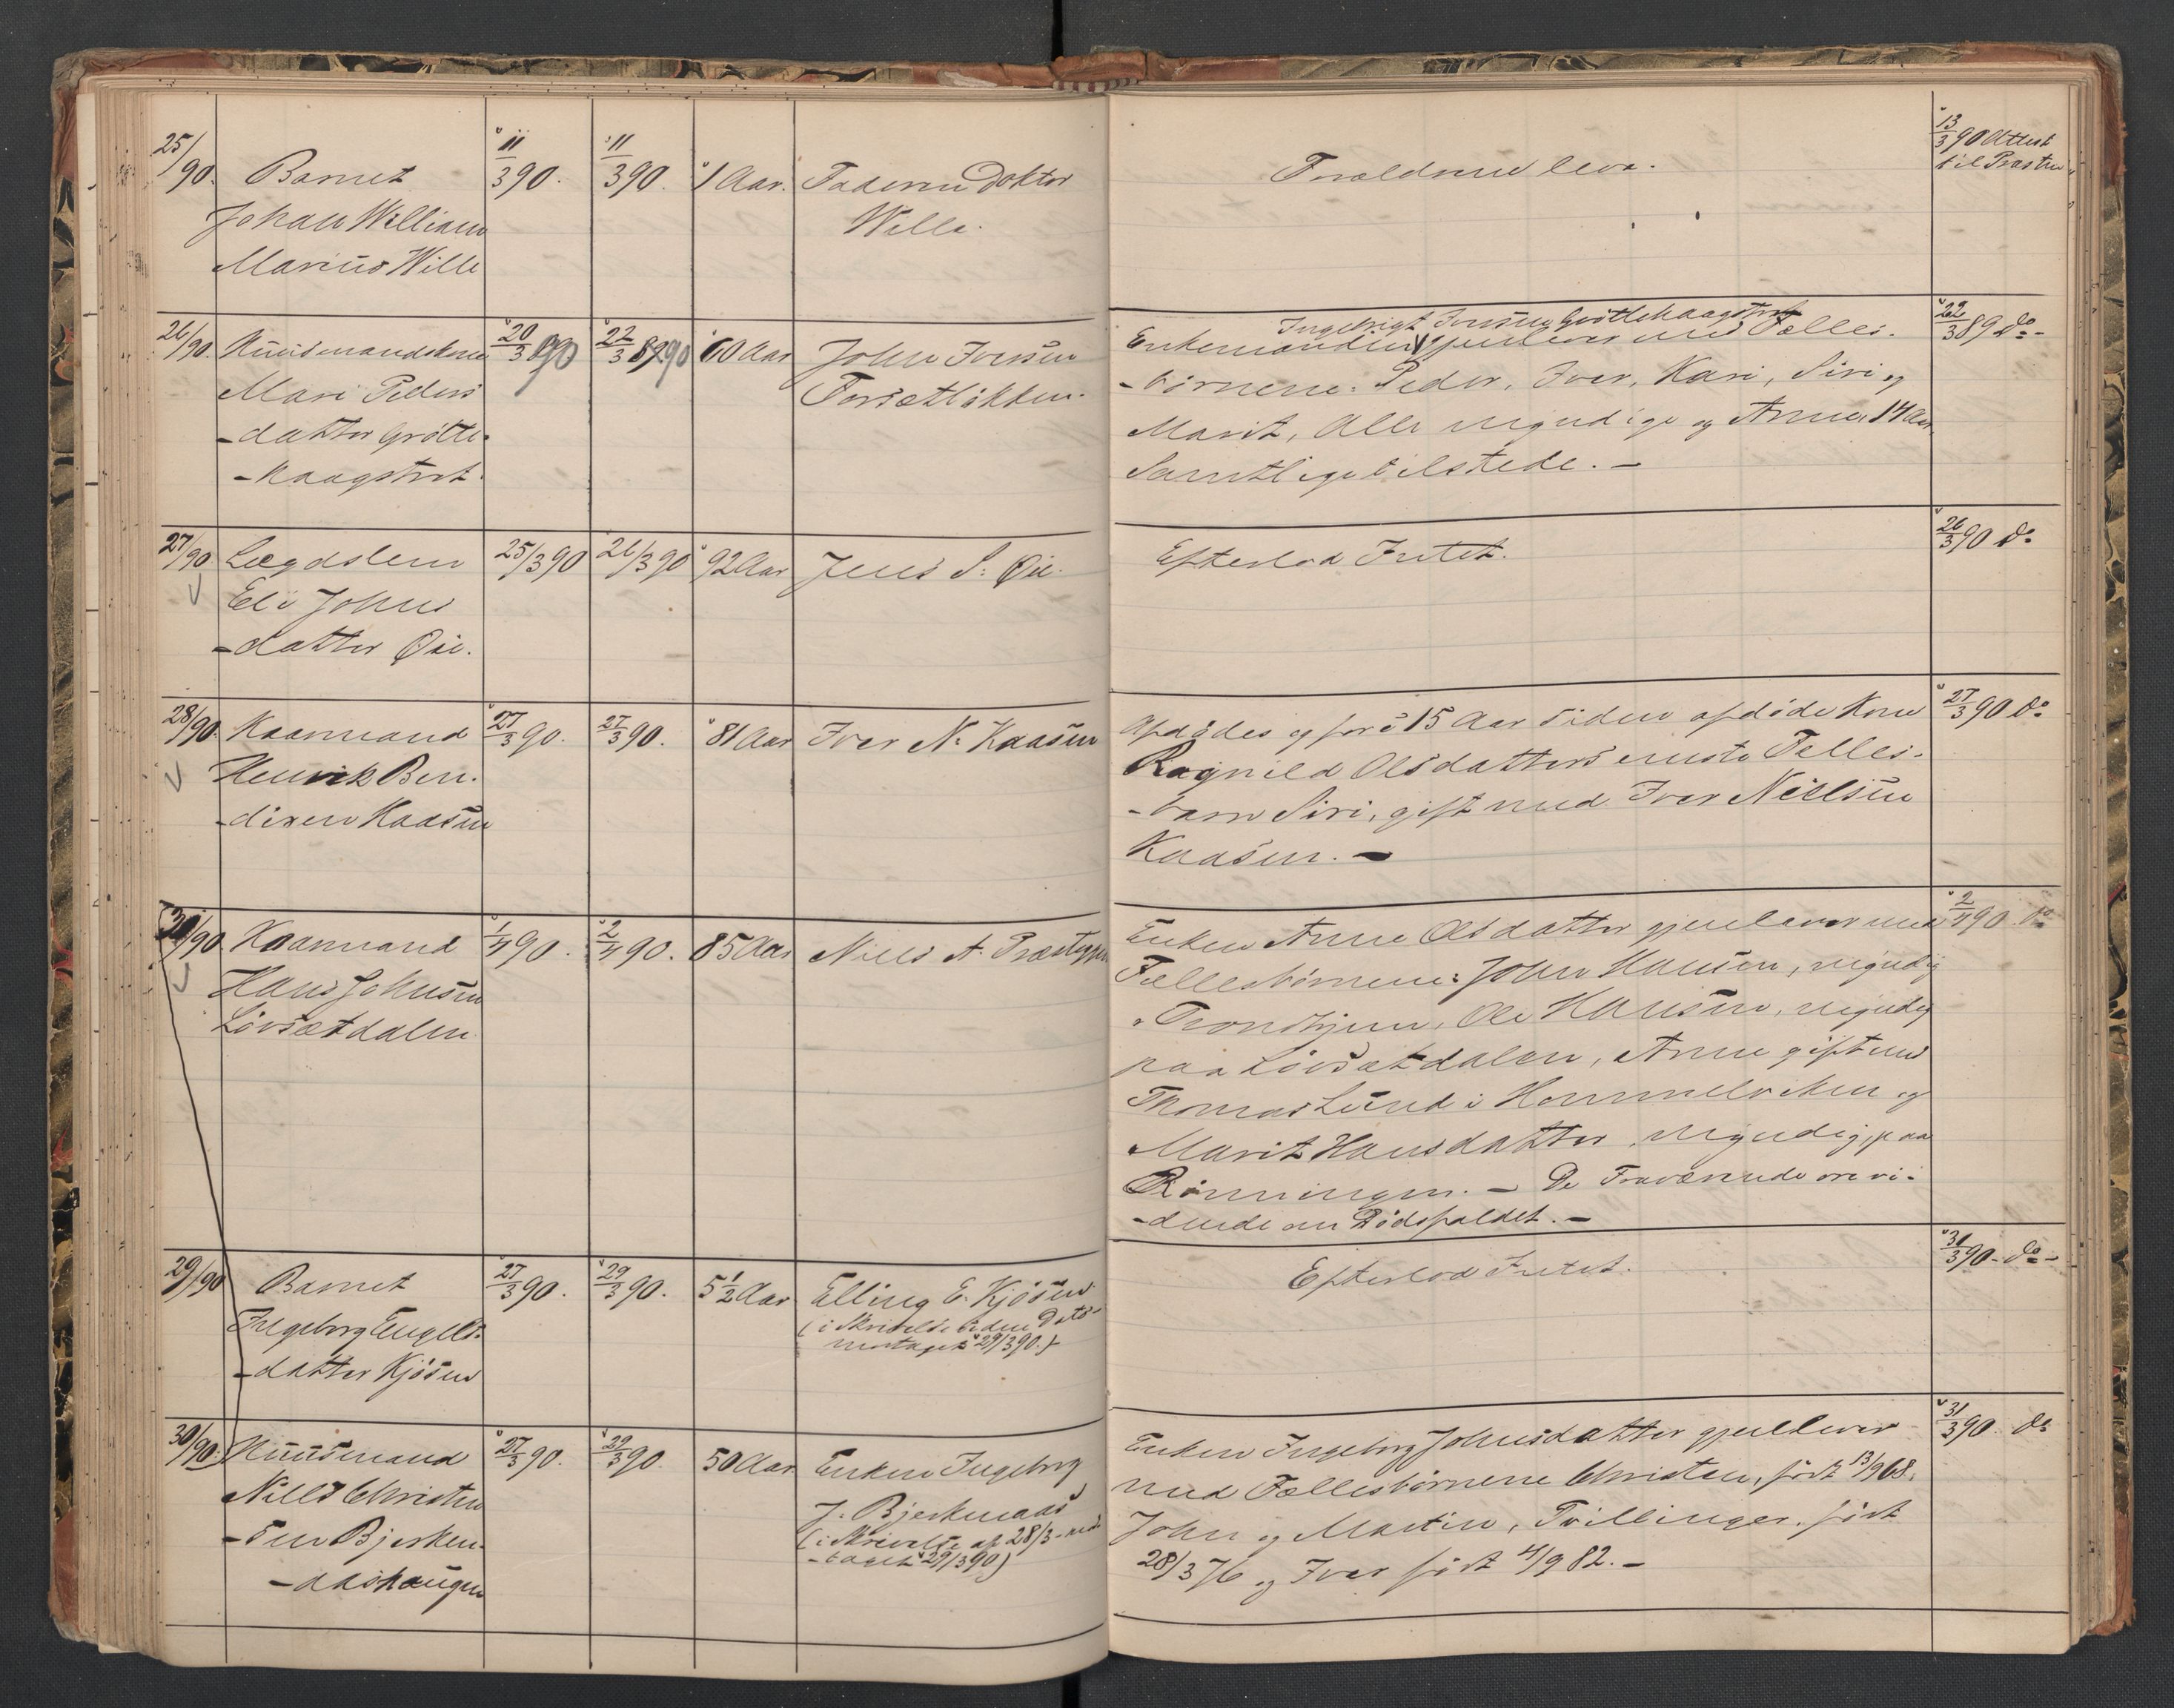 25/90.
Barnet
Johan William
Marius Wille
11/3 90.
11/3 90.
1 Aar.
Faderen Doktor
Wille.
Forældrene leve.
13/3 90 Attest
til Præsten
26/90.
Huusmandskone
Mari Peders
-datter Grötte-
-haagstrøt.
20/3 90
22/3 90
60 Aar
John Iversen
Forsætløkken.
Ingebrigt Iversen Grøttehaagstrøt
Enkemanden gjenlever med Fælles-
-børnene: Peder, Iver, Kari, Siri og
Marit, Alle myndige og Anne 14 Aar.
Samtlige tilstede. -
22/3 89 do -
27/90
Lægdslem
Eli Johns
-datter Øie.
25/3 90
26/3 90
92 Aar
Jens S. Øie.
Efterlod Intet.
26/3 90 do
28/90.
Kaarmand
Henrik Ben-
-dixen Kaasen
27/3 90.
27/3 90.
81 Aar
Iver N. Kaasen
Afdødes og for c 15 Aar siden afdøde Kone
Ragnild Olsdatters eneste Fælles-
-barn Siri, gift med Iver Nielsen
Kaasen. -
27/3 90 do
30/90
Kaarmand
Hans Johnsen
Løvsætdalen
1/4 90.
2/4 90.
85 Aar
Niels A. Præstegrn
Enken Anne Olsdatter gjenlever med
Fællesbørnene: John Hansen, myndig
i Trondhjem, Ole Hansen, myndig
paa Løvsætdalen, Anne gift med
Thomas Lund i Hommelviken og
Marit Hansdatter, myndig, paa
Rønningen. - De Fraværende ere vi-
-dende om Dødsfaldet. -
2/4 90. do
29/90
Barnet
Ingeborg Engels-
-datter Kjøsen
27/3 90.
29/3 90.
5 1/2 Aar
Elling E. Kjøsen
(i Skrivelse uden Dato
modtaget 29/3 90.)
Efterlod Intet.
31/3 90 - do -
30/90.
Huusmand
Niels Christen
-sen Bjerken-
-aashaugen
27/3 90.
29/3 90.
50 Aar
Enken Ingeborg
J. Bjerkenaas
(i Skrivelse af 28/3 - mod
-taget 29/3 90)
Enken Ingeborg Johnsdatter gjenlever
med Fællesbørnene Christen, født 13/9 68.
John og Martin, Tvillinger, født
28/3 76 og Iver født 4/9 82. -
31/3 90. do